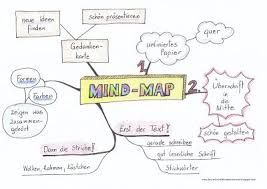 neue Ideen
finden
schön präsentieren
Gedanken-
karte
1.
unliniertes
Papier
quer
MIND-MAP
2.
Überschrift
in
die Mitte
schön gestalten
Formen
Farben
zeigen was
zusammen-
gehört
Dann die Striche!
Wolken, Rahmen, Kästchen
Erst der Text!
gerade schreiben
gut leserliche Schrift
Stichwörter